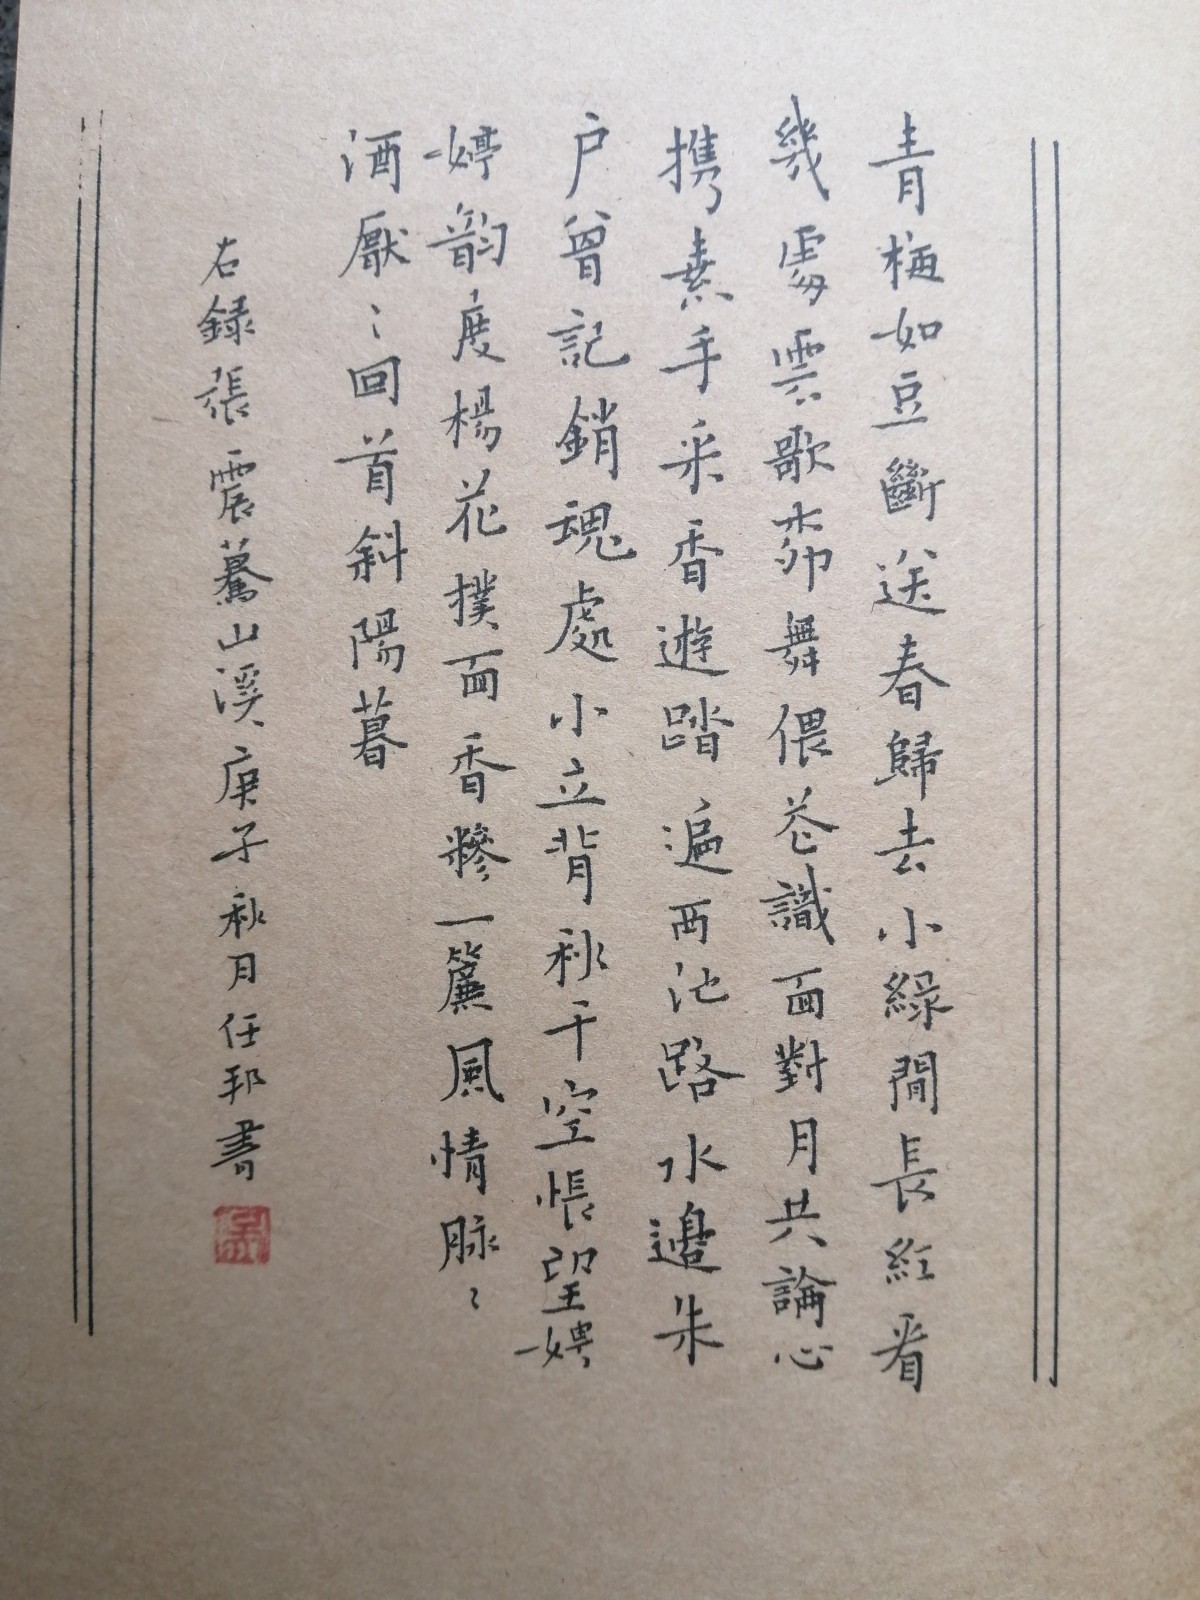 青梅如豆斷送春歸去小綠閒長紅看
幾處雲歌柳舞偎花識面對月共論心
携素手采香遊踏遍西池路水邊朱
户曾記銷魂處小立背秋千空悵望娉
婷韵度楊花撲面香糝一簾風情脉〻
酒厭〻回首斜陽暮
右録張震驀山溪庚子秋月任邦書